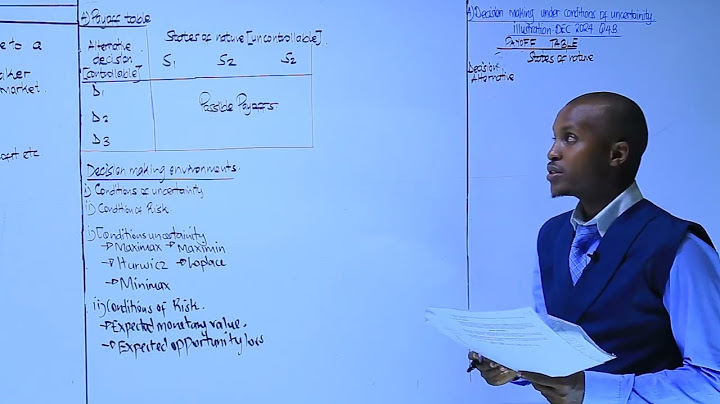 e to a
aker
market.
etc
A) Payoff table
Alternative
decision
[controllable]
States of nature [uncontrollable].
S1 S2 S2
D1
D2
D3
Possible Payoffs
Decision making environments.
i) Conditions of uncertainity
ii) Condition of Risk
i) Conditions uncertainity
→ Maximax → Maximin
→ Hurwicz → Laplace
→ Minimax
ii) Conditions of Risk.
→ Expected monetary value.
→ Expected opportunity loss
A) Decision making under conditions of uncertainity.
illustration DEC 2024 Q4B
PAYOFF TABLE
States of nature
Decision
Alternative